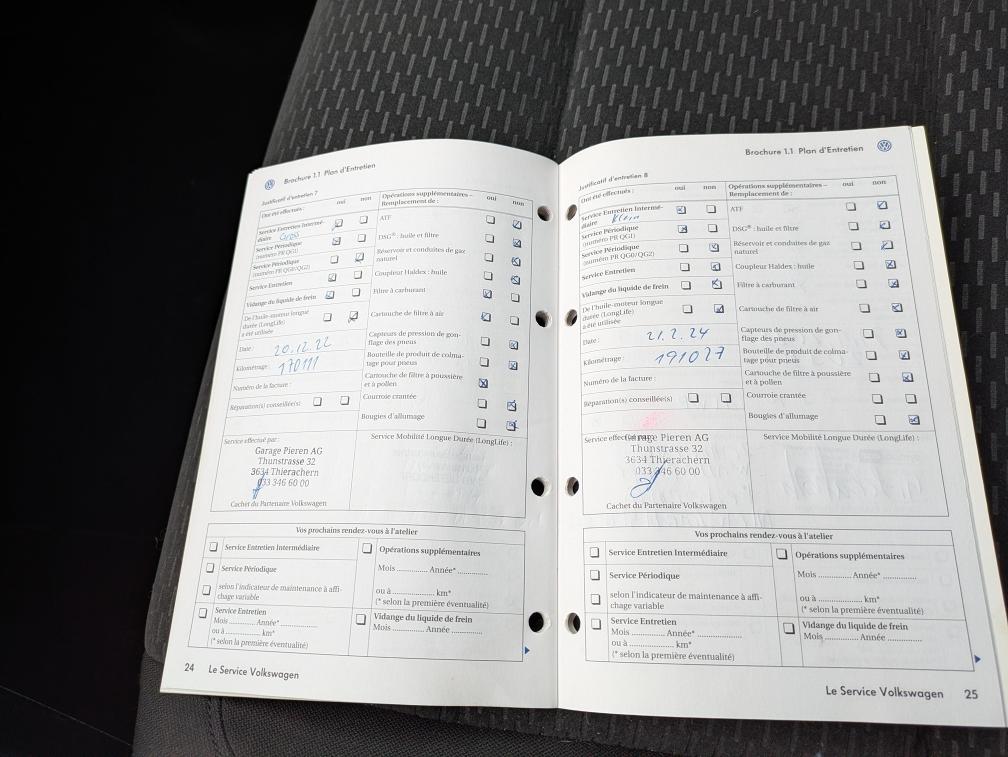 Brochure 1.1 Plan d'Entretien
Justificatif d'entretien 7
Ont été effectués :
oui non
Opérations supplémentaires –
Remplacement de :
oui non
Service Entretien Intermé-
diaire Gross
Service Périodique
(numéro PR QG1)
Service Périodique
(numéro PR QG0/QG2)
Service Entretien
Vidange du liquide de frein
De l'huile-moteur longue
durée (LongLife)
a été utilisée
Date : 20.12.22
Kilométrage : 170111
Numéro de la facture :
Réparation(s) conseillée(s)
ATF
DSG® : huile et filtre
Réservoir et conduites de gaz
naturel
Coupleur Haldex : huile
Filtre à carburant
Cartouche de filtre à air
Capteurs de pression de gon-
flage des pneus
Bouteille de produit de colma-
tage pour pneus
Cartouche de filtre à poussière
et à pollen
Courroie crantée
Bougies d'allumage
Service effectué par :
Garage Pieren AG
Thunstrasse 32
3634 Thierachern
033 346 60 00
Cachet du Partenaire Volkswagen
Service Mobilité Longue Durée (LongLife) :
Vos prochains rendez-vous à l'atelier
Service Entretien Intermédiaire
Service Périodique
selon l'indicateur de maintenance à affi-
chage variable
Service Entretien
Mois ............. Année* ..................
ou à ....................... km*
(* selon la première éventualité)
Opérations supplémentaires
Mois .............. Année* ...............
ou à ....................... km*
(* selon la première éventualité)
Vidange du liquide de frein
Mois .............. Année ...............
24 Le Service Volkswagen
Brochure 1.1 Plan d'Entretien
Justificatif d'entretien 8
Ont été effectués :
oui non
Opérations supplémentaires –
Remplacement de :
oui non
Service Entretien Intermé-
diaire Klein
Service Périodique
(numéro PR QG1)
Service Périodique
(numéro PR QG0/QG2)
Service Entretien
Vidange du liquide de frein
De l'huile-moteur longue
durée (LongLife)
a été utilisée
Date : 21.2.24
Kilométrage : 191027
Numéro de la facture :
Réparation(s) conseillée(s)
ATF
DSG® : huile et filtre
Réservoir et conduites de gaz
naturel
Coupleur Haldex : huile
Filtre à carburant
Cartouche de filtre à air
Capteurs de pression de gon-
flage des pneus
Bouteille de produit de colma-
tage pour pneus
Cartouche de filtre à poussière
et à pollen
Courroie crantée
Bougies d'allumage
Service effectué par :
Garage Pieren AG
Thunstrasse 32
3634 Thierachern
033 346 60 00
Cachet du Partenaire Volkswagen
Service Mobilité Longue Durée (LongLife) :
Vos prochains rendez-vous à l'atelier
Service Entretien Intermédiaire
Service Périodique
selon l'indicateur de maintenance à affi-
chage variable
Service Entretien
Mois ............. Année* ..................
ou à ....................... km*
(* selon la première éventualité)
Opérations supplémentaires
Mois .............. Année* ...............
ou à ....................... km*
(* selon la première éventualité)
Vidange du liquide de frein
Mois .............. Année ...............
Le Service Volkswagen 25